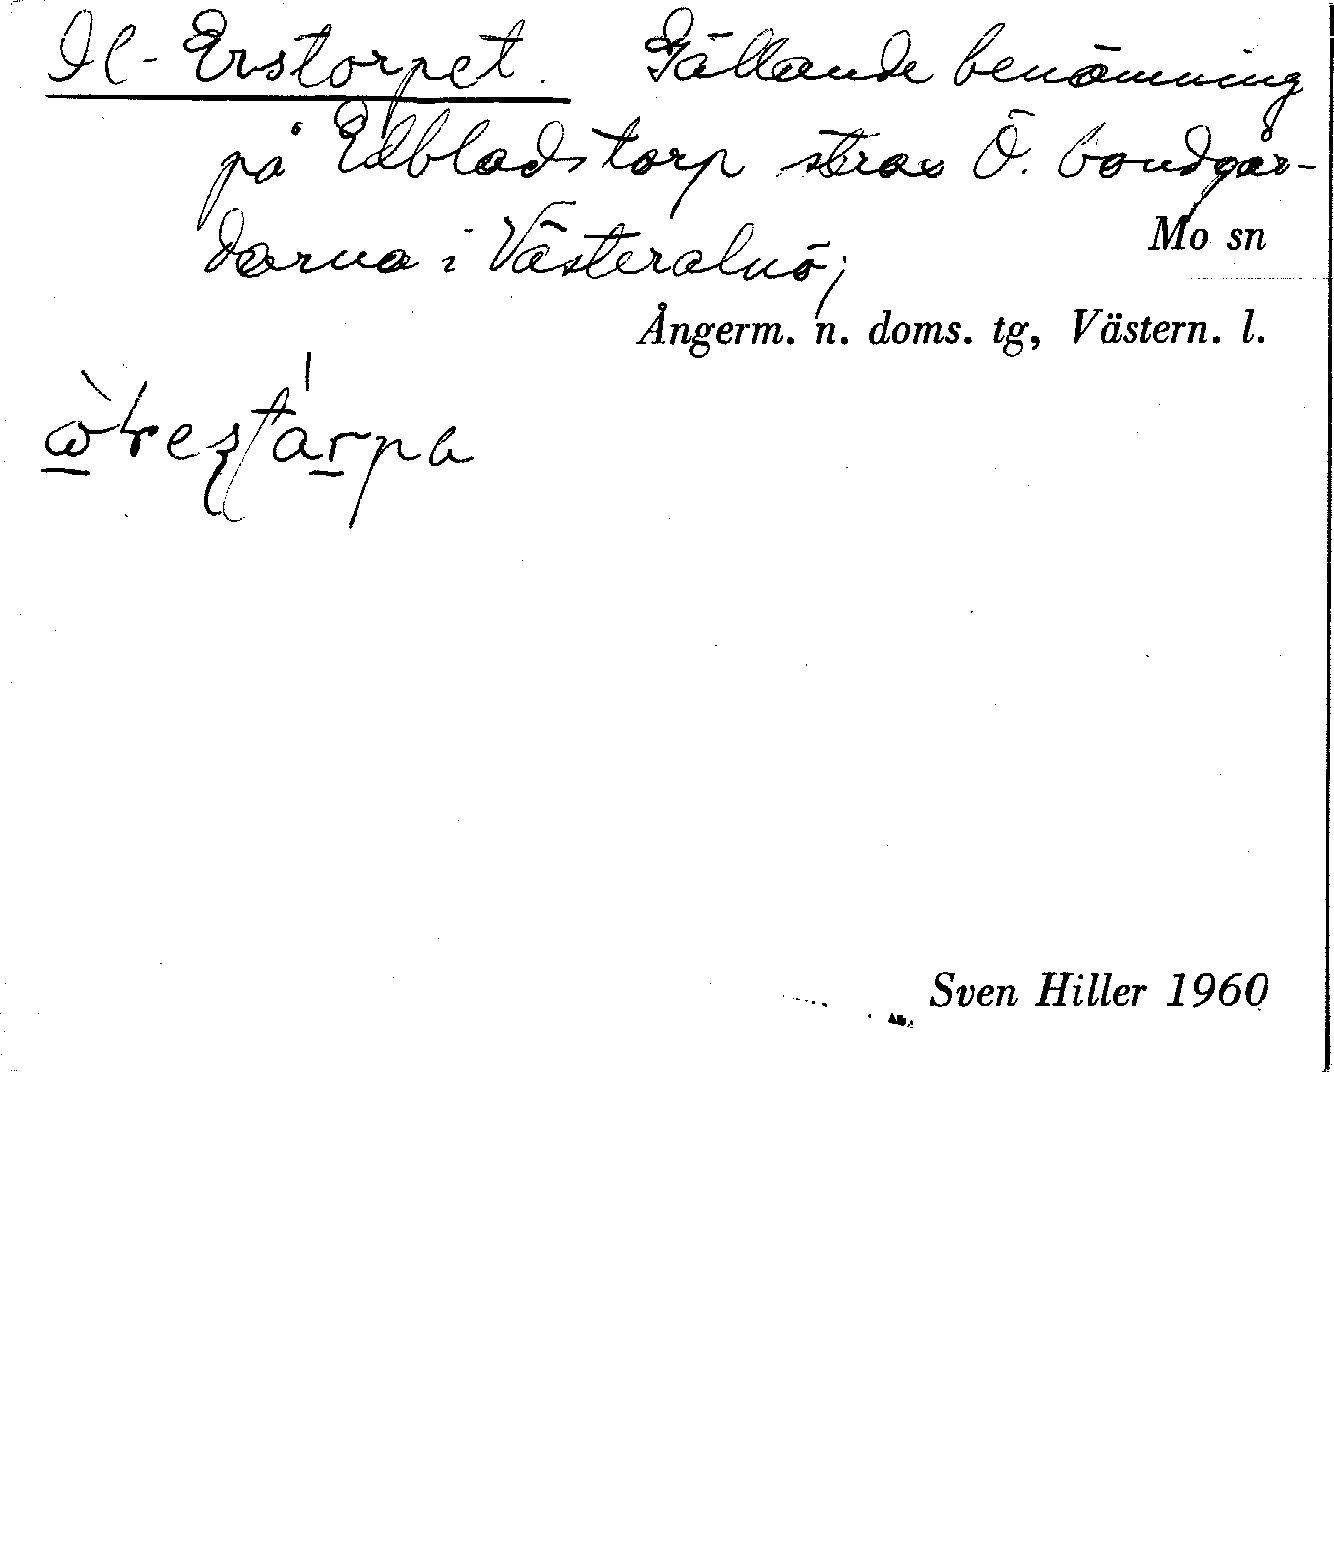 Il-Erstorpet. Gällande benämning
på Edbladstorp strax Ö. bondgår-
darna i Västeralnö;
Mo sn
Ångerm. n. doms. tg, Västern. l.
Sven Hiller 1960